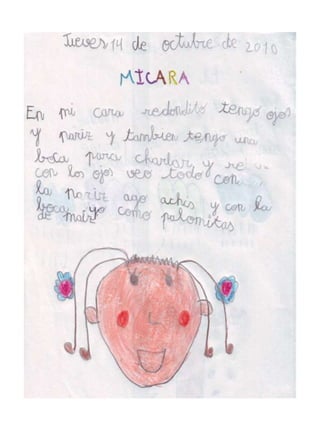 Jueves 14 de octubre de 2010
MICARA
En mi cara redondito tengo ojos
y nariz y tambien tengo una
boca para charlar y
con los ojos veo todo con
la nariz ago achis y con la
boca yo como palomitas
de maiz